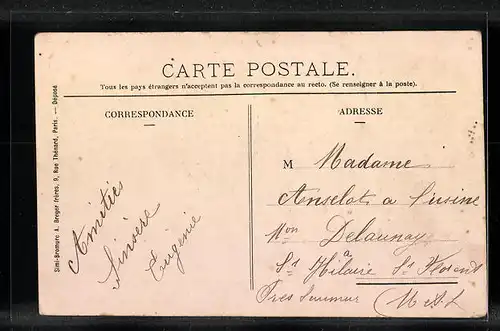 CARTE POSTALE.
Tous les pays étrangers n'acceptent pas la correspondance au recto. (Se renseigner à la poste).
CORRESPONDANCE
ADRESSE
Simi-Bromure A. Breger frères, 9, Rue Thénard, Paris. — Déposé
Amitiés
Sinsère
Eugénie
M Madame
Anselot a l'usine
Mon Delaunay
à
St Hilaire St Florent
Pres Saumur (M et L